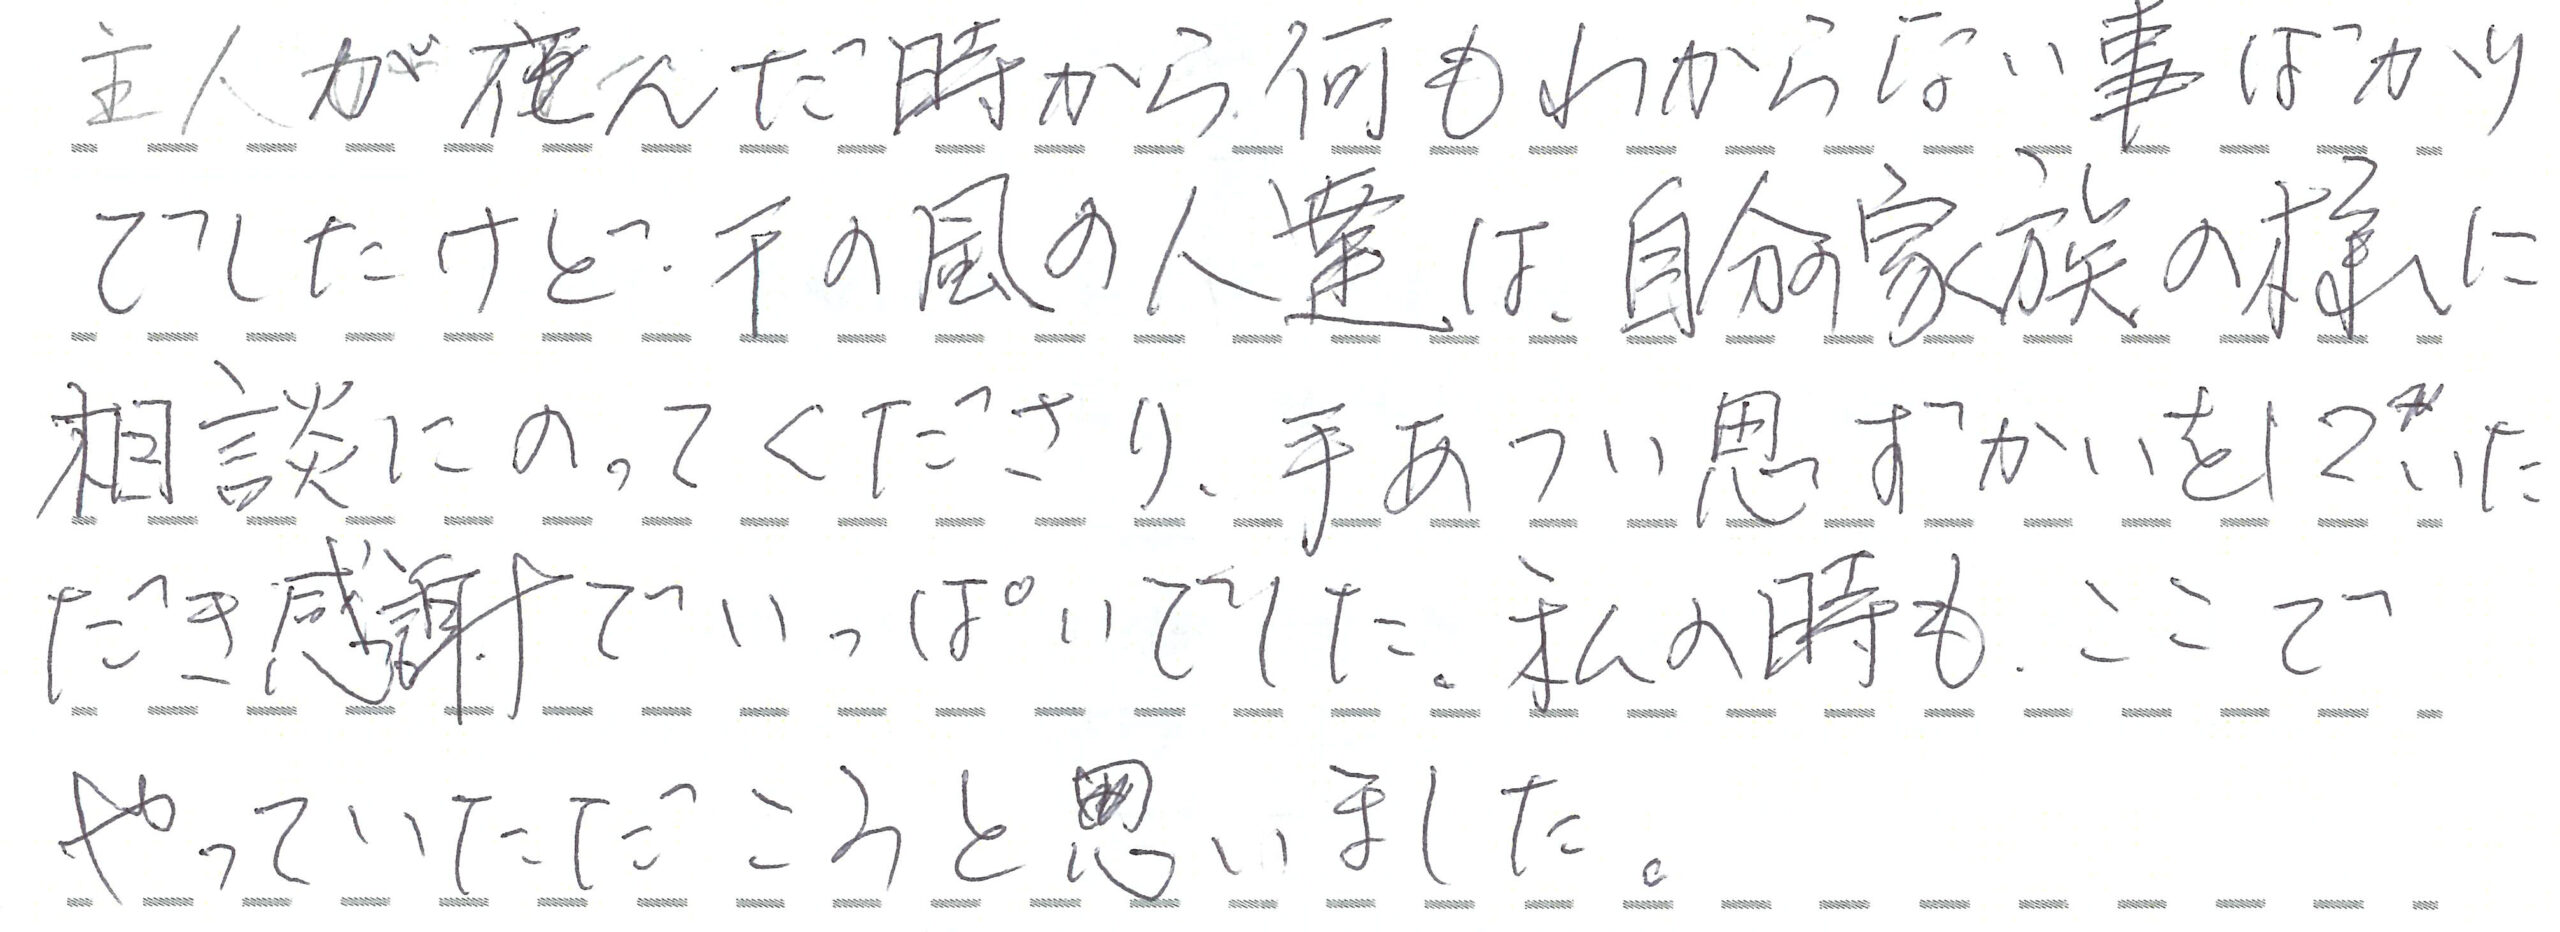 主人が病んだ時から何もわからない事ばかり
でしたけど、千の風の人達は、自分の家族の様に
相談にのってくださり、手あつい思ずかいをしていた
だき感謝でいっぱいでした。私の時も、ここで
やっていただころと思いました。